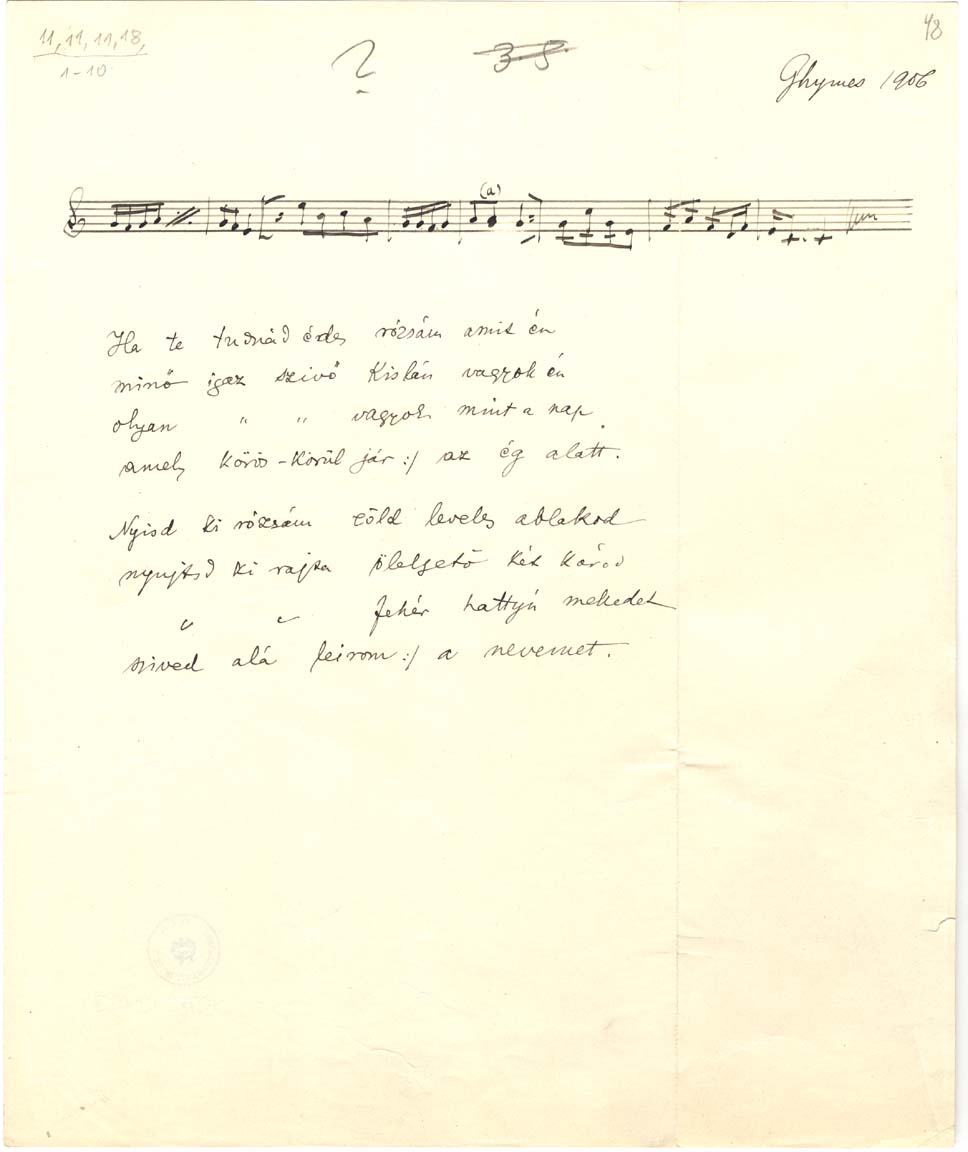 48
11, 11, 11, 18,
1-10
?
35
Ghymes 1906
(a)
Ha te tudnád édes rózsám amit én
minő igaz szivő Kislán vagyok én
olyan " " vagyok mint a nap
amely körös-körül jár :/ az ég alatt.
Nyisd ki rózsám zöld leveles ablakod
nyujtsd ki rajta ölelgető két károd
" " fehér hattyú melledet
szived alá leirom :/ a nevemet.